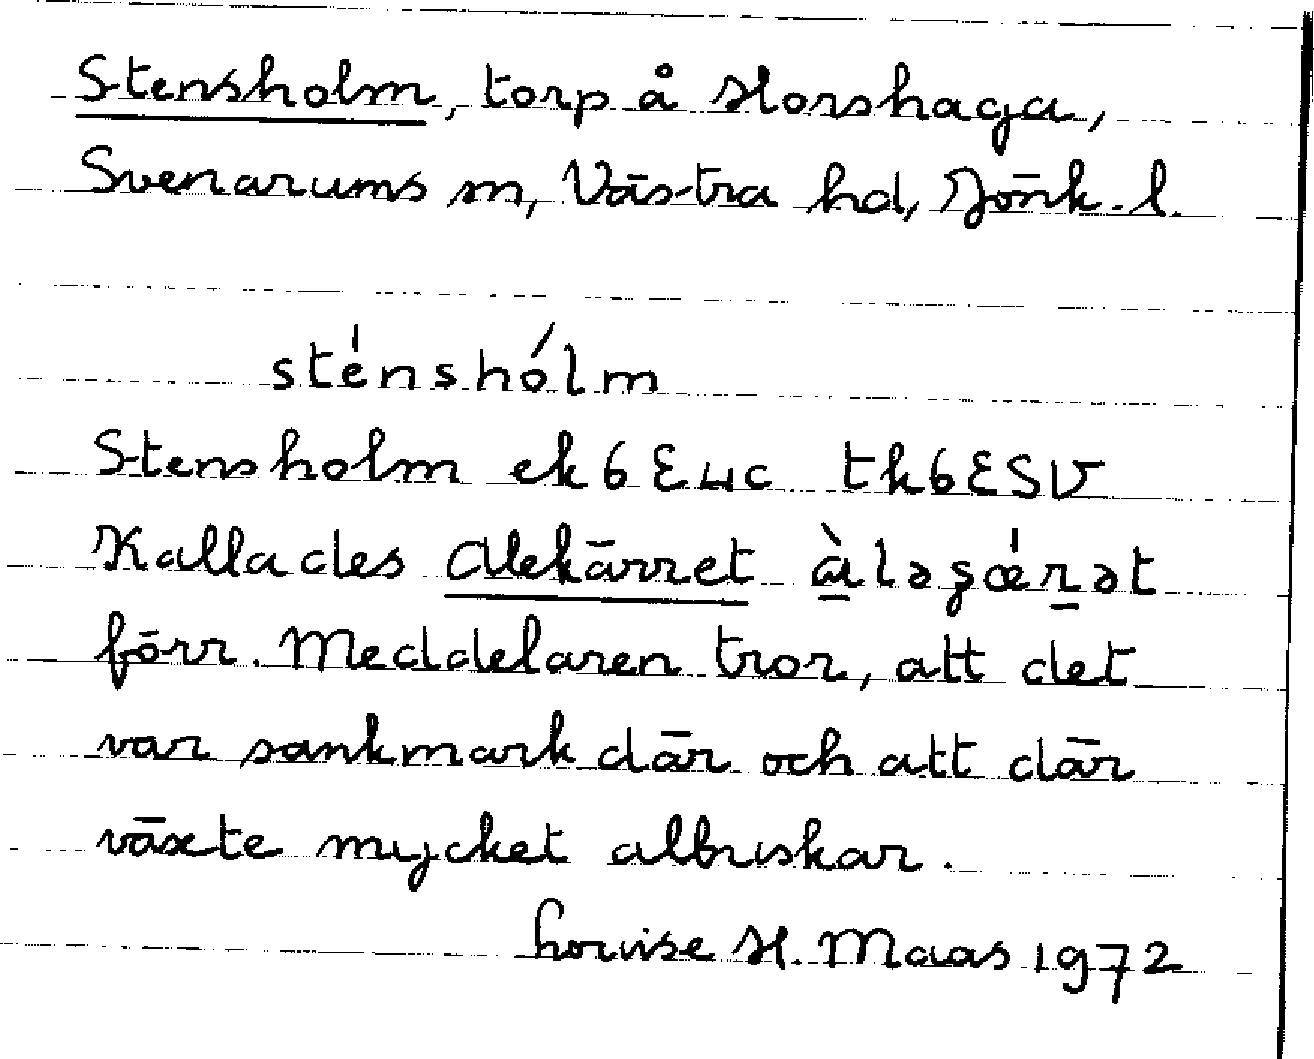 Stensholm, torp å Horshaga,
Svenarums sn, Västra hd, Jönk. l.
sténshólm
Stensholm ek 6 E 4c tk 6ESV
Kallades Alekärret àləʂœ́rət
förr. Meddelaren tror, att det
var sankmark där och att där
växte mycket albuskar.
Louise H. Maas 1972